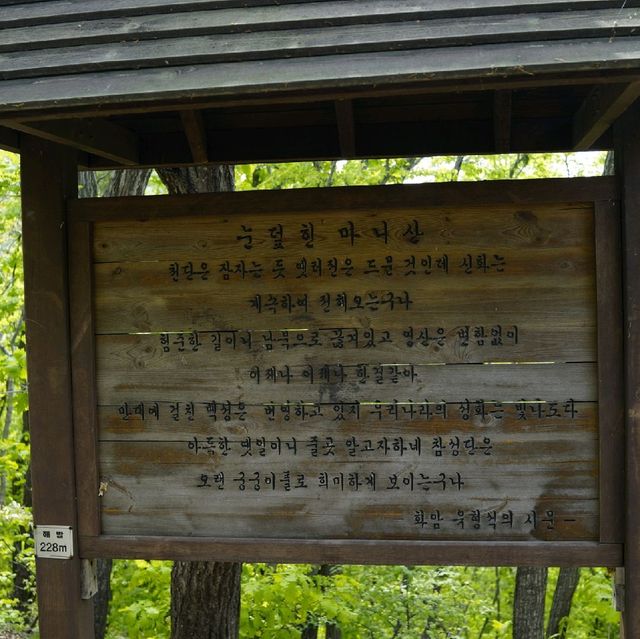 눈덮힌 마니산
천단은 잠자는 듯 옛터전은 드문 것인데 신화는
계속하여 전해오는구나
험준한 길이니 남북으로 끊겨있고 영산은 변함없이
어제나 이제나 한결같아
만대에 걸친 백성들 번영하고 있지 우리나라의 성화는 빛나도다
아득한 옛일이니 줄곳 알고자하네 참성단은
오랜 궁궁이풀로 희미하게 보이는구나
화암 유형석의 시문
해발
228m